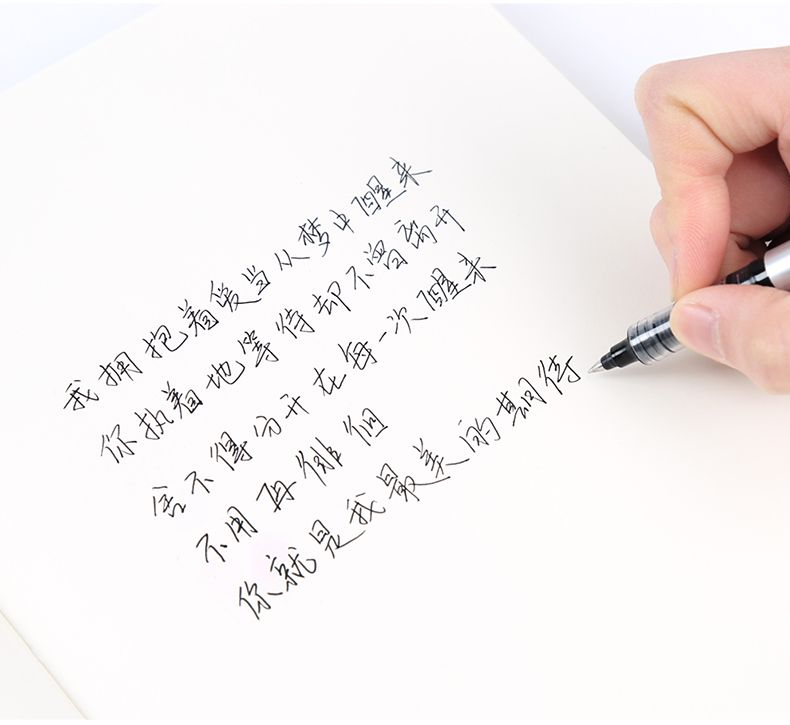 我拥抱着爱当从梦中醒来
你执着地等待却不曾离开
舍不得分开在每一次醒来
不用再徘徊
你就是我最美的期待